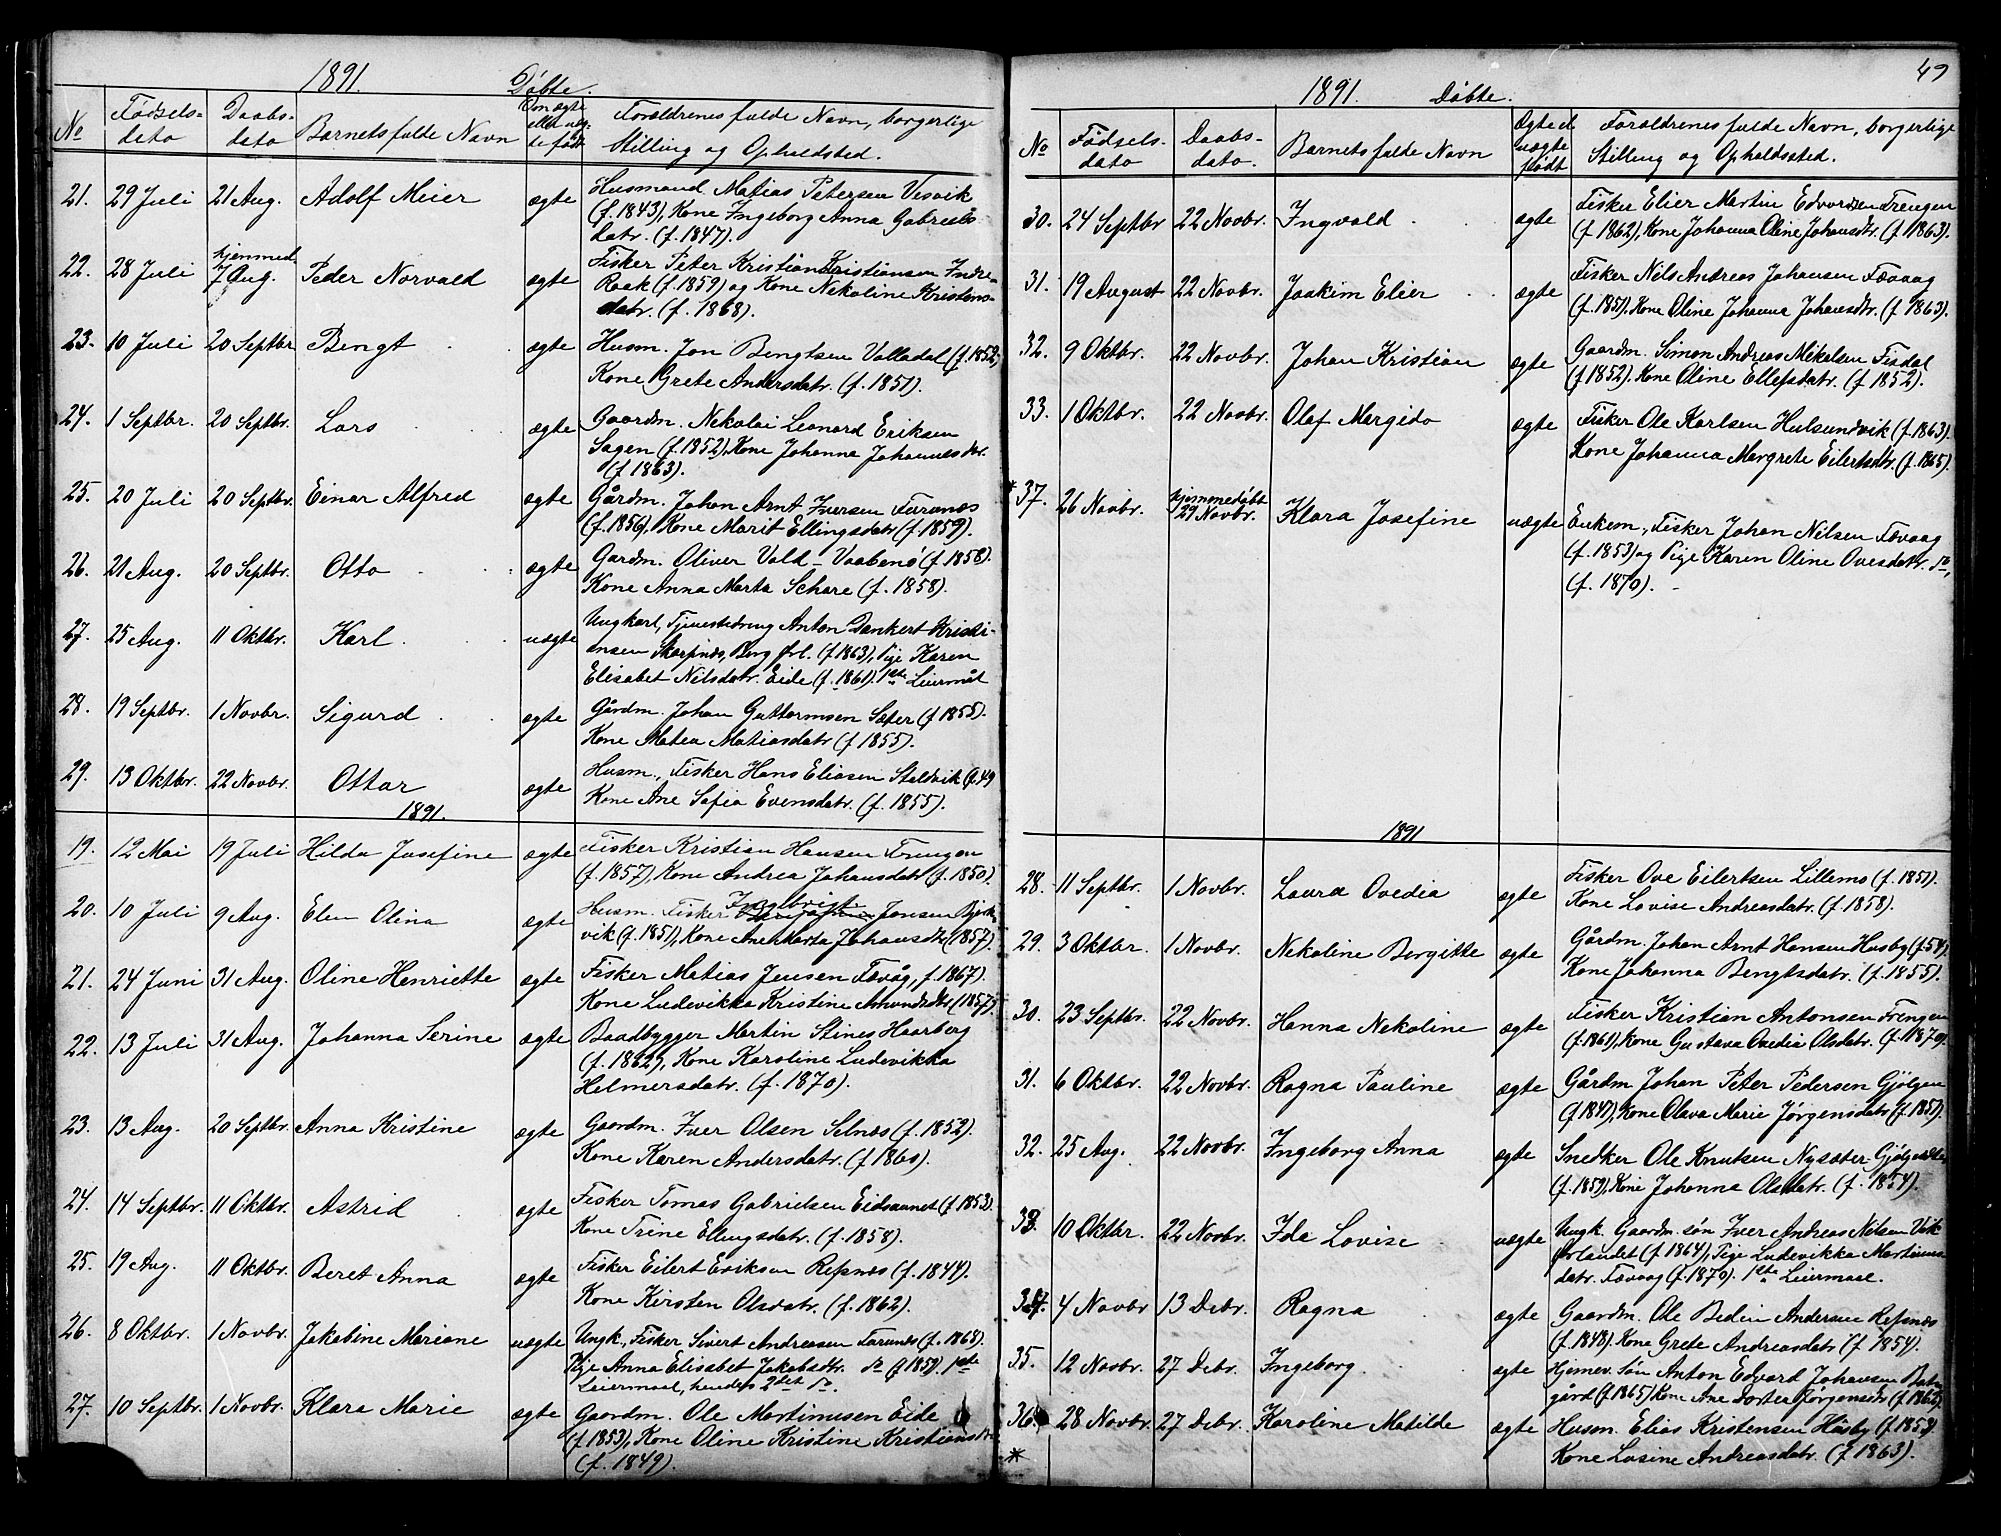 1891. Døbte.
No Fødsels-dato Daabs-dato Barnets fulde Navn Om ægte eller uæg-te født Forældrenes fulde Navn, borgerlige
Stilling og Opholdsted.
21. 29 Juli 21 Aug. Adolf Meier ægte Husmand Matias Petersen Vesvik
(f. 1843), Kone Ingeborg Anna Gabriels-
datr. (f. 1847).
22. 28 Juli hjemmed. 7 Aug. Peder Norvald ægte Fisker Peter Kristian Kristiansen Indre-
Raak (f. 1859) og Kone Nekoline Kristens-
datr. (f. 1868).
23. 10 Juli 20 Septbr Bengt ægte Husm. Jon Bengtsen Valladal (f. 1852)
Kone Grete Andersdatr. (f. 1851).
24. 1 Septbr. 20 Septbr. Lars ægte Gaardm. Nekolai Leonard Eriksen
Sagen (f. 1852), Kone Johanna Johannesdtr.
(f 1863).
25. 20 Juli 20 Septbr. Einar Alfred ægte Gårdm. Johan Arnt Iversen Furunes
(f. 1856), Kone Marit Ellingsdatr (f. 1859).
26. 21 Aug. 20 Septbr. Otto ægte Gardm. Oliver Vald - Vaabenö (f. 1858).
Kone Anna Marta Schare (f. 1858).
27. 25 Aug. 11 Oktbr. Karl uægte Ungkarl, Tjenestedreng Anton Dankert Kristi-
ansen Skarpnes, Berg Ørl. (f. 1863), Pige Karen
Elisabet Nilsdatr. Eide (f. 1861). 1ste Leiermål
28. 19 Septbr. 1 Novbr. Sigurd ægte Gårdm. Johan Guttormsen Sæter (f 1855).
Kone Matea Matiasdatr (f. 1855).
29. 13 Oktbr. 22 Novbr. Ottar ægte Husm., Fisker Hans Eliasen Stalvik (f. 49
Kone Ane Sofia Evensdatr. (f. 1855).
1891.
19. 12 Mai 19 Juli Hilda Josefine ægte Fisker Kristian Hansen Frengen
(f. 1857), Kone Andrea Johansdatr (f. 1850).
20. 10 Juli 9 Aug. Elen Olina ægte Husm. Fisker Ingbrigt Jonsen Bjerk-
vik (f. 1851), Kone Ane Marta Johansdtr. (1857).
21. 24 Juni 31 Aug. Oline Henriette ægte Fisker Matias Jensen Fævåg, f. 1867).
Kone Ludevikka Kristine Amundsdtr. (1857).
22. 13 Juli 31 Aug. Johanna Serine ægte Baadbygger Martin Stines Haarberg
(f. 1862), Kone Karoline Ludevikka
Helmersdatr. (f. 1870).
23. 13 Aug. 20 Septbr. Anna Kristine ægte Gaardm. Iver Olsen Selnæs (f. 1852).
Kone Karen Andersdatr. (f. 1860).
24. 14 Septbr. 11 Oktbr. Astrid ægte Fisker Tomas Gabrielsen Eidsaunet (f. 1853).
Kone Trine Ellingsdatr. (f. 1858).
25. 19 Aug. 11 Oktbr. Beret Anna ægte Fisker Eilert Eriksen Refsnes (f. 1844).
Kone Kirsten Olsdatr. (f. 1862).
26. 8 Oktbr. 1 Novbr. Jakobine Mariane uægte Ungk., Fisker Sivert Andreasen Farunes (f. 1868).
Pige Anna Elisabet Jakobsdtr. do (f. 1859). 1ste
Leiermaal, hendes 2det do.
27. 10 Septbr. 1 Novbr. Klara Marie ægte Gaardm. Ole Martinusen Eide
(f. 1853), Kone Oline Kristine Kristiansdtr.
(f. 1849).
49
1891. Døbte.
No Fødsels-dato Daabs-dato. Barnets fulde Navn Ægte el. uægte født Forældrenes fulde Navn, borgerlige
Stilling og Opholdssted.
30. 24 Septbr 22 Novbr. Ingvald ægte Fisker Elier Martin Edvardsen Frengen
(f 1862), Kone Johanna Oline Johansdtr. (f 1863).
31. 19 August 22 Novbr. Joakim Elier ægte Fisker Nils Andreas Johansen Fævaag
(f. 1851). Kone Oline Johanna Johansdtr. (f 1863).
32. 9 Oktbr. 22 Novbr. Johan Kristian ægte Gaardm. Simon Andreas Mikalsen Fisdal
(f 1852). Kone Oline Ellefsdatr. (f 1852).
33. 1 Oktbr. 22 Novbr. Olaf Margido ægte Fisker Ole Karlsen Hulsundvik (f. 1863).
Kone Johanna Margrete Eilertsdtr. (f. 1865).
* 37. 26 Novbr. hjemmedøbt 29 Novbr. Klara Josefine uægte Enkem., Fisker Johan Nilsen Fævaag
(f. 1853) og Pige Karen Oline Ovesdatr. do,
(f. 1870).
1891
28. 11 Septbr. 1 Novbr. Laura Ovedia ægte Fisker Ove Eilertsen Lillemo (f. 1851).
Kone Lovise Andreasdatr. (f. 1858).
29. 3 Oktbr. 1 Novbr. Nekoline Bergitte ægte Gårdm. Johan Arnt Hansen Husby (f. 54).
Kone Johanna Bengtsdatr. (f. 1855).
30. 23 Septbr. 22 Novbr. Hanna Nekoline ægte Fisker Kristian Antonsen Frengen
(f. 1861), Kone Gustava Ovedia Olsdatr. (f. 1870).
31. 6 Oktbr. 22 Novbr. Ragna Pauline ægte Gårdm Johan Peter Pedersen Gjölgen
(f. 1847), Kone Olava Marie Jørgensdatr. (f. 1851).
32. 25 Aug. 22 Novbr. Ingeborg Anna ægte Snedker Ole Knutsen Nysæter
(f. 1859), Kone Johanna Olsdatr. (f. 1854).
33. 10 Oktbr. 22 Novbr. Ida Lovise uægte Ungk. Gaardm. søn Iver Andreas Nilsen Viik
Ørlandet (f. 1864), Pige Ludevikka Martinus-
datr. Fævaag (f. 1870). 1ste Leiermaal.
34. 4 Novbr 13 Debr. Ragna ægte Gaardm. Ole Bedin Andersen Refsnæs
(f. 1848). Kone Grete Andreasdatr (f 1854).
35. 12 Novbr. 27 Debr. Ingeborg. ægte Hjemev. Søn Anton Edvard Johansen
gård (f. 1865), Kone Ane Dortea Jörgensdtr. (f. 1862).
36. 28 Novbr. 27 Debr. Karoline Matilde ægte Husm. Elias Kristensen Håsby (f. 1853).
* Kone Lusine Andreasdatr. (f 1863).